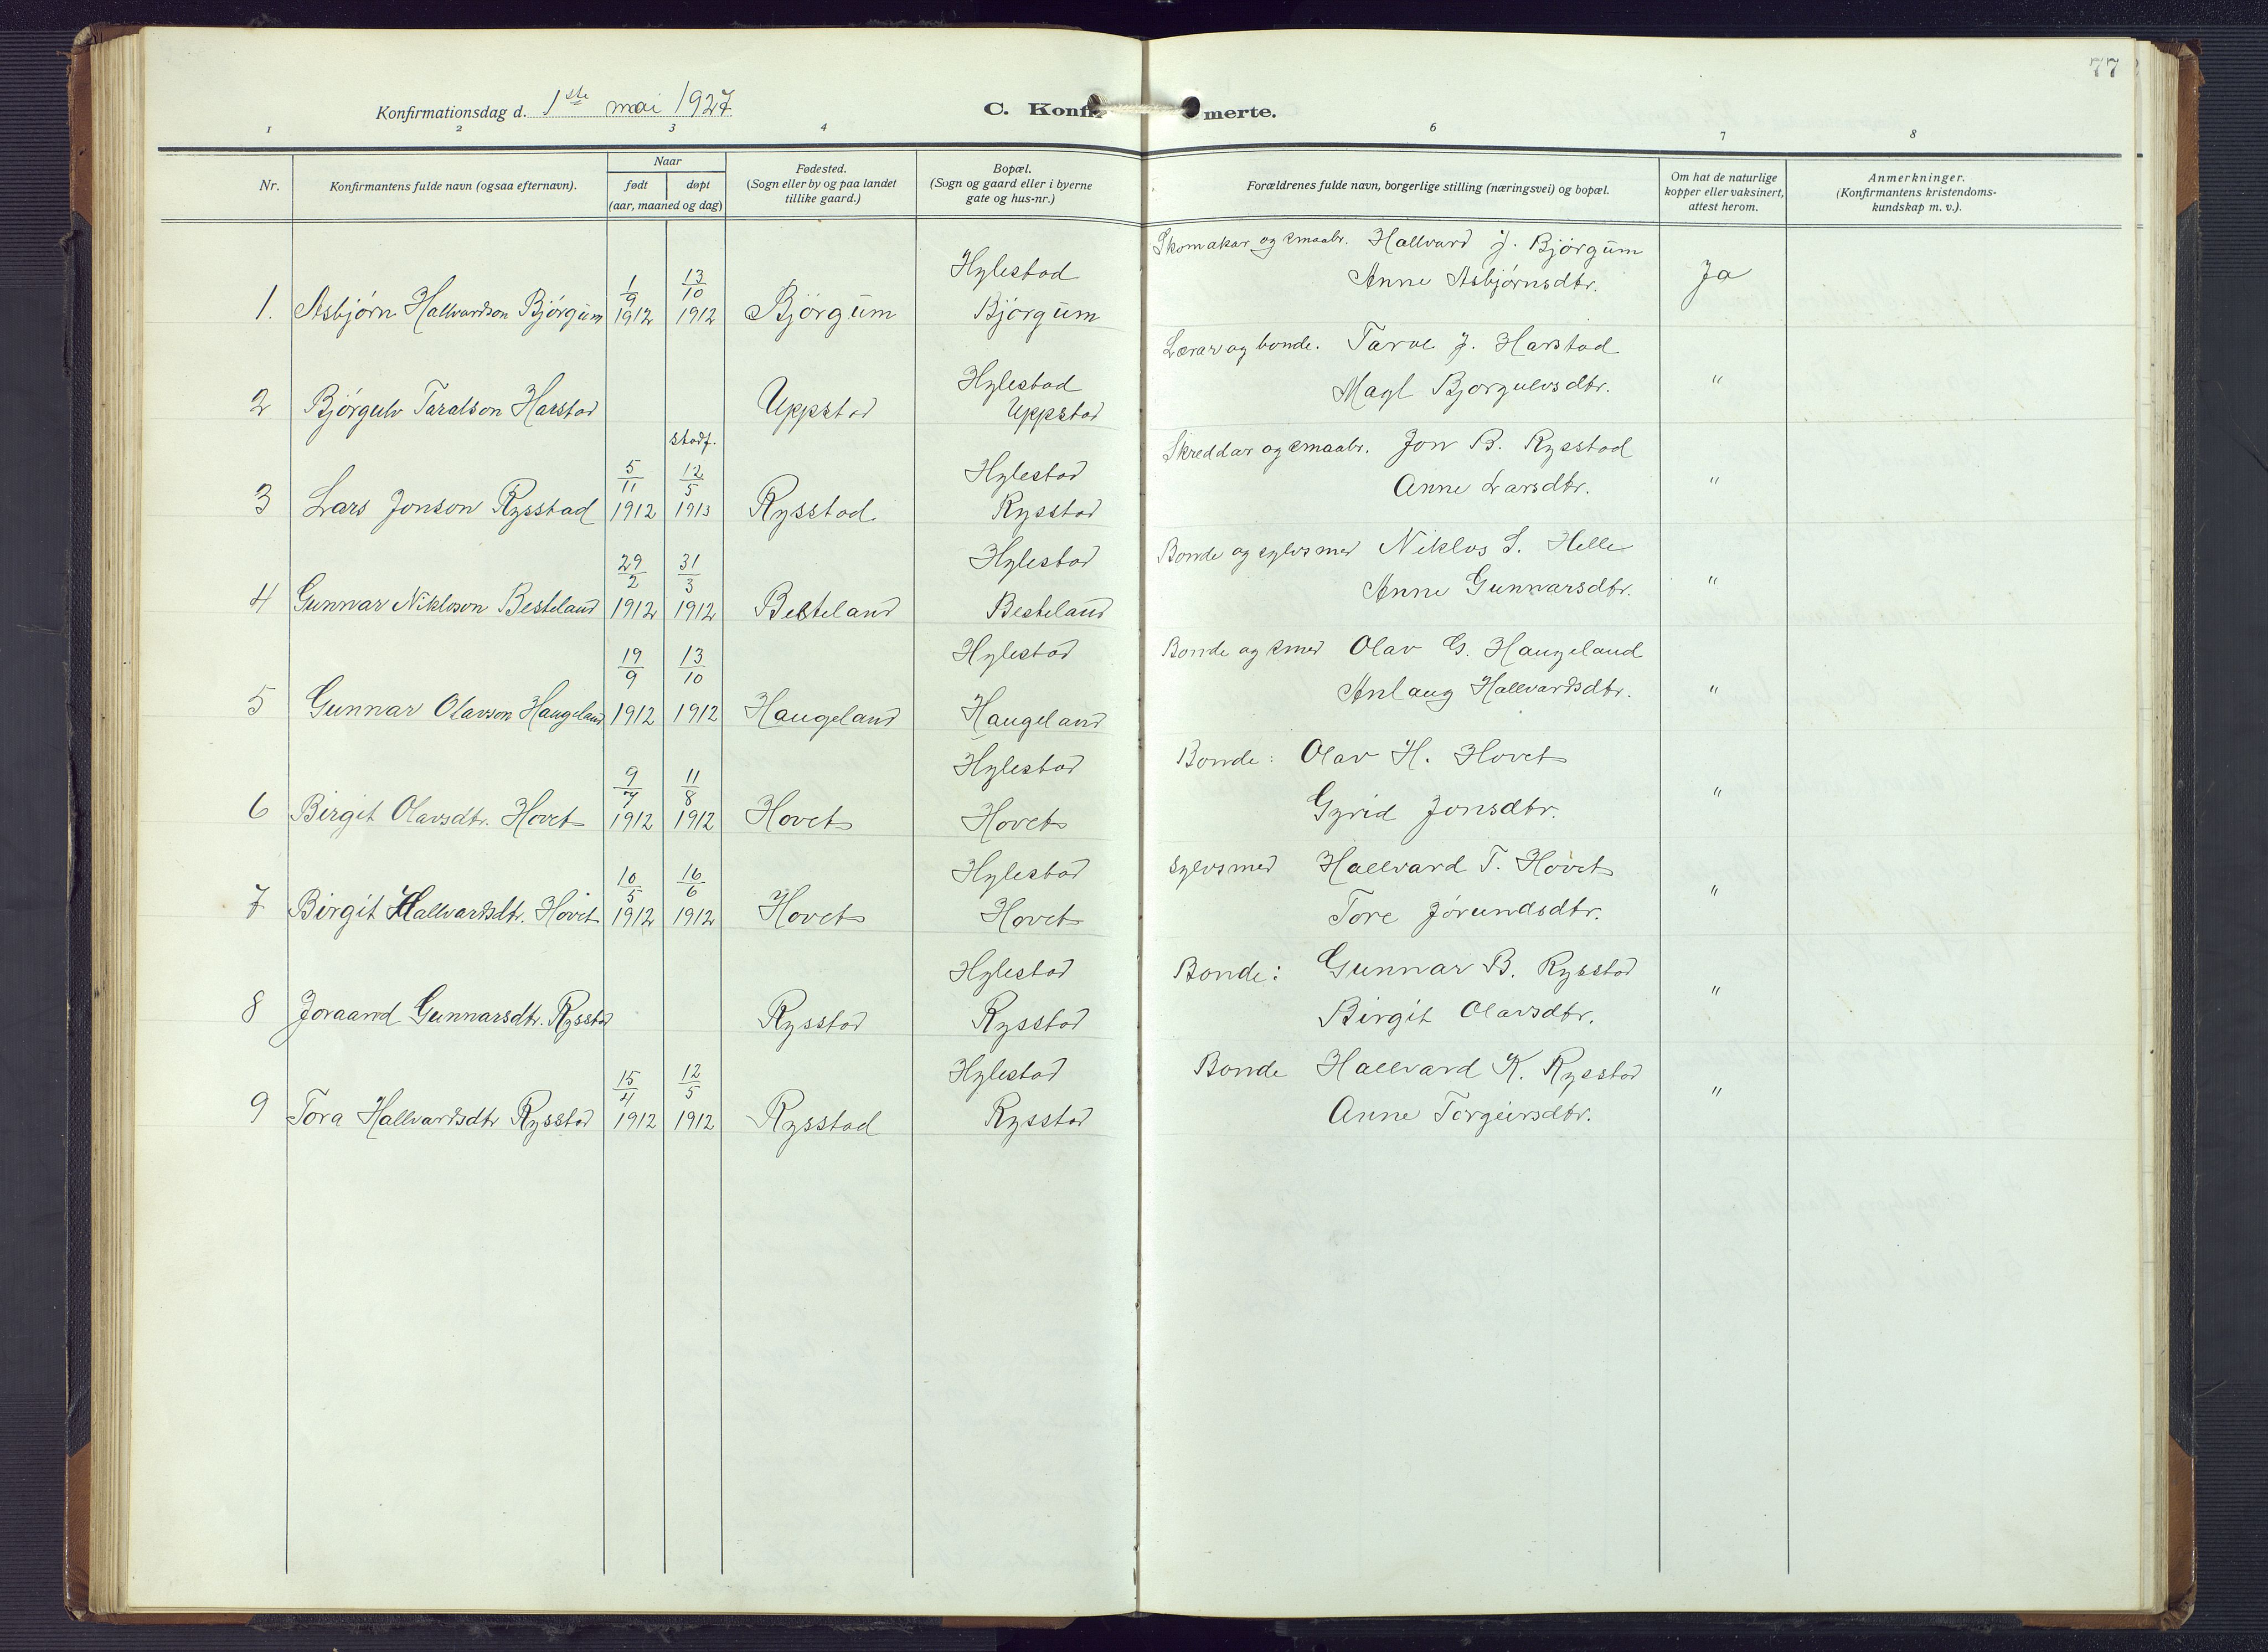 77
Konfirmationsdag d. 1ste mai 1927
C. Konfirmerte.
1 2 3 4 6 7 8
Nr.
Konfirmantens fulde navn (ogsaa efternavn).
Naar
født døpt
(aar, maaned og dag)
Fødested.
(Sogn eller by og paa landet
tillike gaard.)
Bopæl.
(Sogn og gaard eller i byerne
gate og hus-nr.)
Forældrenes fulde navn, borgerlige stilling (næringsvei) og bopæl.
Om hat de naturlige
kopper eller vaksinert,
attest herom.
Anmerkninger.
(Konfirmantens kristendoms-
kundskap m. v.).
Hylestad Skomakar og smaabr. Hallvard J. Bjørgum
1/9 13/10 Anne Asbjørnsdtr. Ja
1. Asbjørn Hallvardson Bjørgum 1912 1912 Bjørgum Bjørgum
Hylestad Lærar og bonde. Tarve J. Harstad
2 Bjørgulv Taralson Harstad Uppstad Uppstad Magl Bjorgulvsdtr. "
stadf.
5/11 12/5 Hylestad Skreddar og smaabr. Jon B. Rysstad
3 Lars Jonson Rysstad 1912 1913 Rysstad. Rysstad Anne Larsdtr. "
29/2 31/3 Hylestad Bonde og sylvsmed Niklos S. Helle
4 Gunnar Nikloson Besteland 1912 1912 Besteland Besteland Anne Gunnarsdtr. "
19/9 13/10 Hylestad Bonde og smed Olav G. Haugeland
5 Gunnar Olavson Haugeland 1912 1912 Haugeland Haugeland Anlaug Hallvardsdtr. "
9/7 11/8 Hylestad Bonde: Olav H. Hovet
6 Birgit Olavsdtr. Hovet 1912 1912 Hovet Hovet Gyrid Jonsdtr. "
10/5 16/6 Hylestad Sylvsmed Hallvard T. Hovet
7 Birgit Hallvardsdtr. Hovet 1912 1912 Hovet Hovet Tore Jørundsdtr. "
Hylestad Bonde: Gunnar B. Rysstad
8 Joraand Gunnarsdtr. Rysstad Rysstad Rysstad Birgit Olavsdtr. "
15/4 12/5 Hylestad Bonde Hallvard K. Rysstad
9 Tora Hallvardsdtr Rysstad 1912 1912 Rysstad Rysstad Anne Torgeirsdtr. "